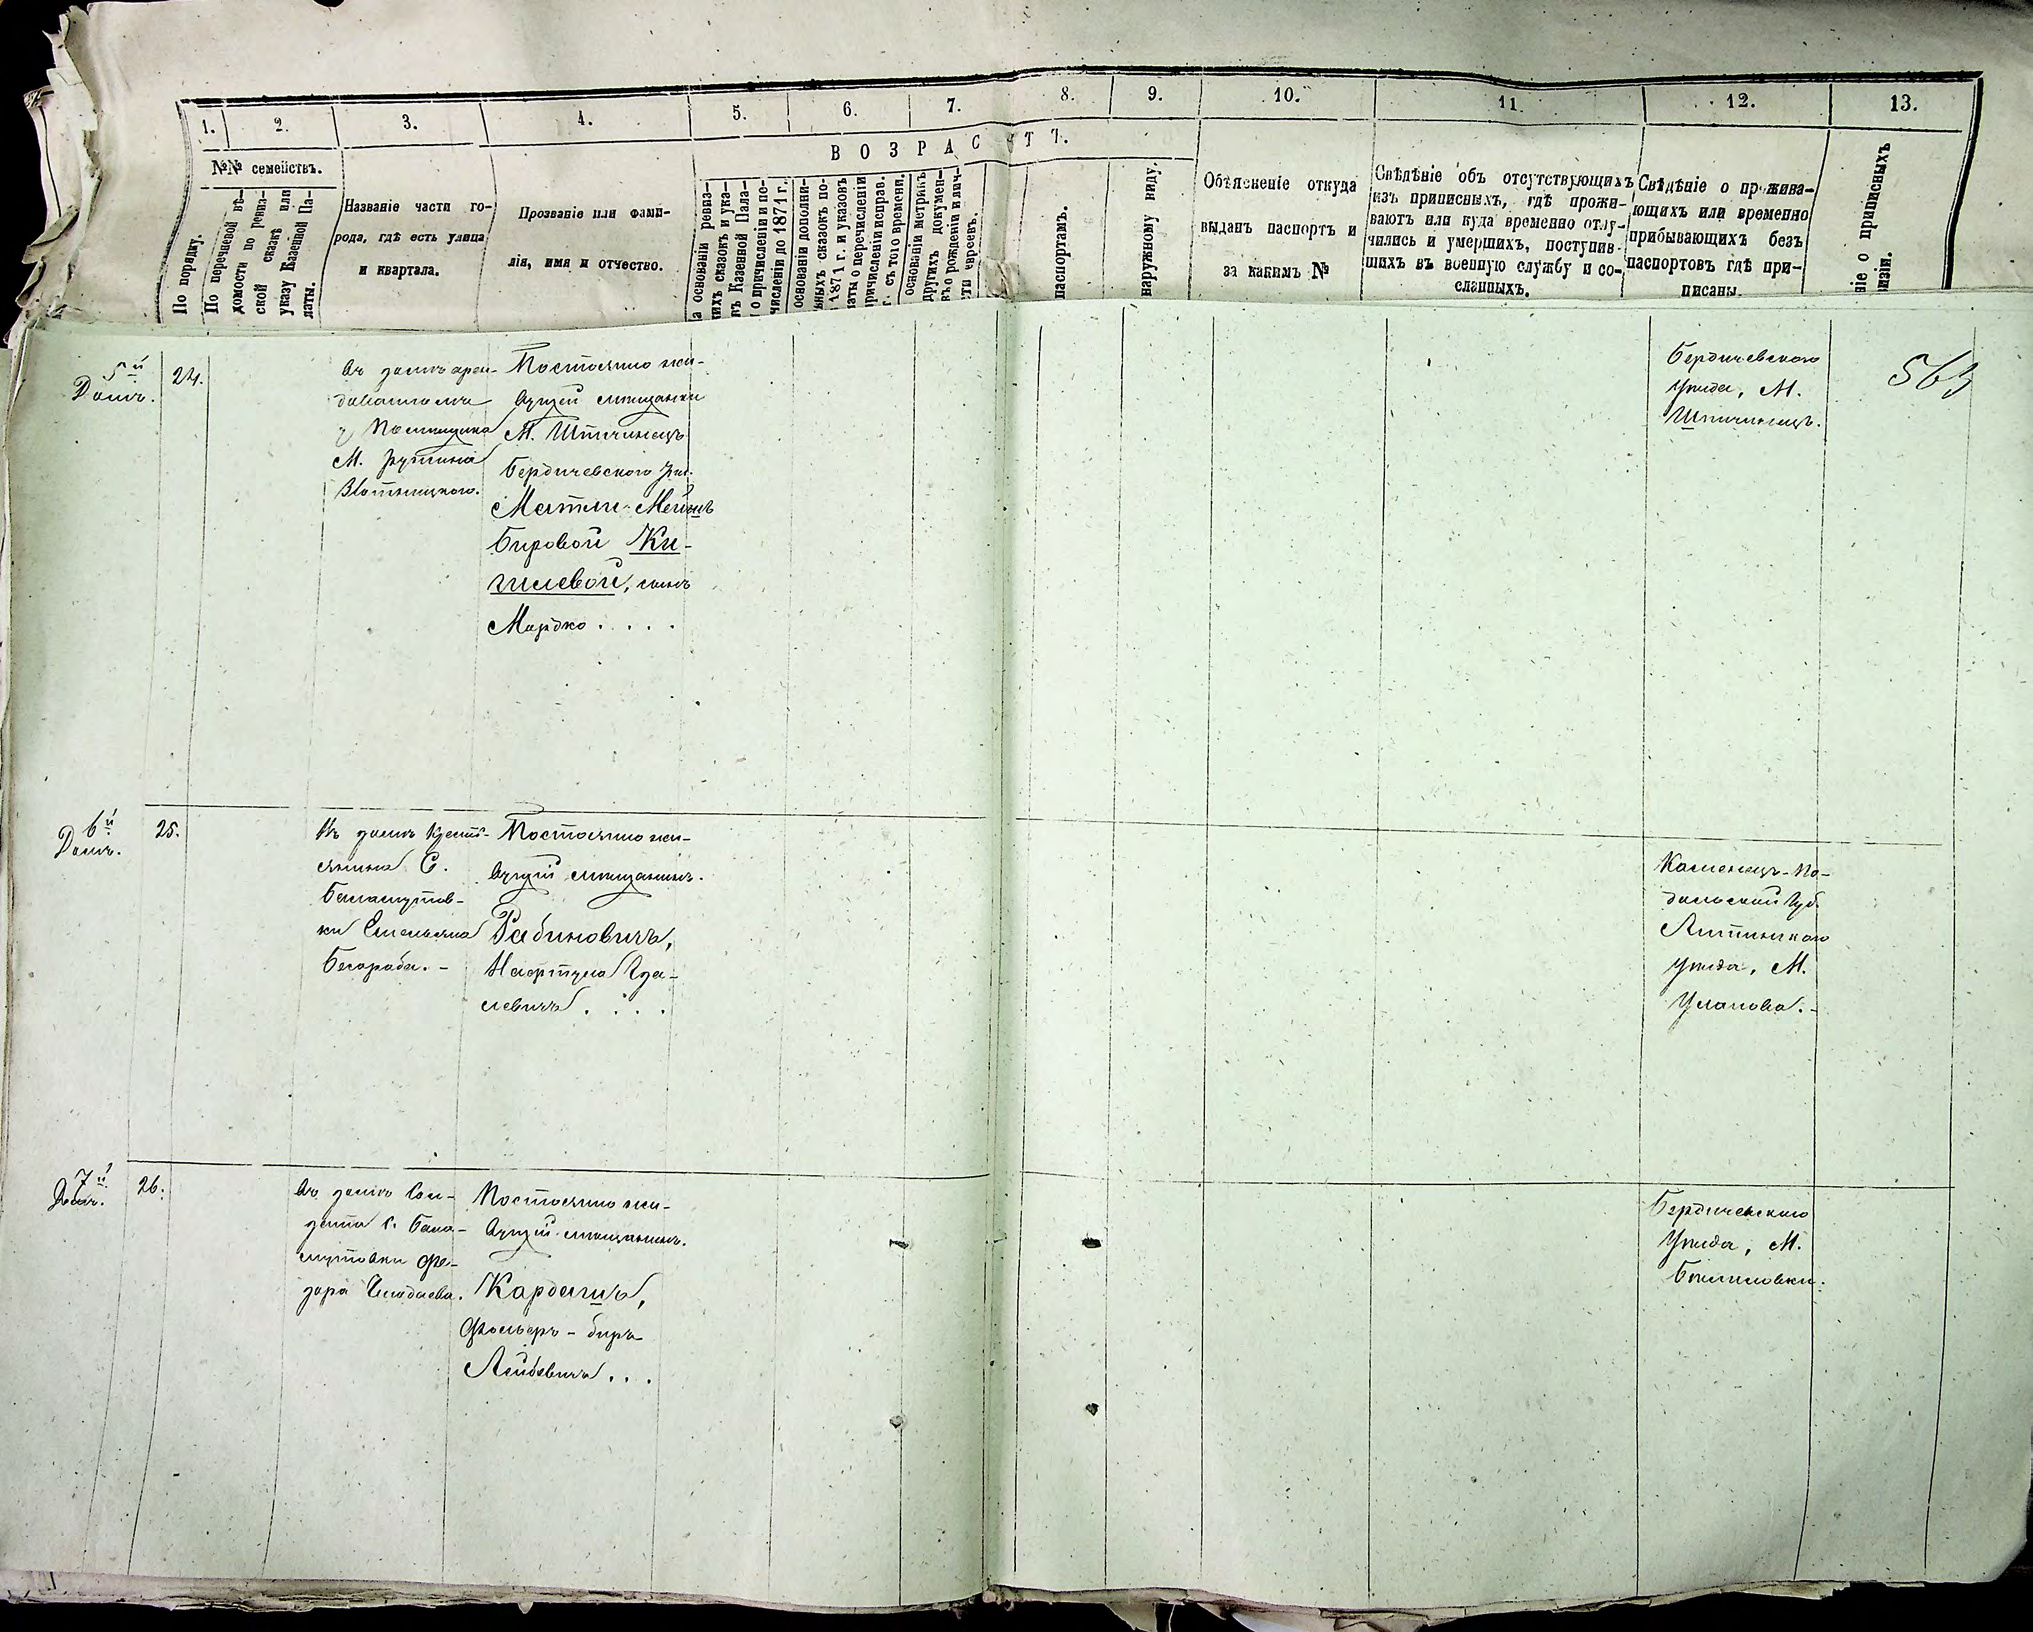 1.
2.
3.
4.
5.
6.
7.
8.
9.
10.
11.
12.
13.
ВОЗРАСТЪ.
№№ семействъ.
По порядку.
По перечневой вѣ-
домости по ревиз-
ской сказкѣ или
указу Казенной Па-
латы.
Названіе части го-
рода, гдѣ есть улица
и квартала.
Прозваніе или фами-
лія, имя и отчество.
основаніи ревиз-
скихъ сказокъ и ука-
Казенной Пала-
о причисленіи и по-
численіи до 1871 г.
основаніи дополни-
сказокъ по-
1871 г. и указовъ
о перечисленіи
съ того времени.
основаніи метрикъ
другихъ докумен-
о рожденіи и
евреевъ.
паспортамъ.
наружному виду.
Объясненіе откуда
выданъ паспортъ и
за какимъ №
Свѣдѣніе объ отсутствующихъ
изъ приписныхъ, гдѣ прожи-
ваютъ или куда временно отлу-
чились и умершихъ, поступив-
шихъ въ военную службу и со-
сланныхъ.
Свѣдѣніе о прожива-
ющихъ или временно
прибывающихъ безъ
паспортовъ гдѣ при-
писаны.
о приписныхъ
5й
Домъ.
24.
въ домѣ арен-
Помѣщика
М. Ружина
Злотницкого.
Постоянно жи-
вущей мѣщанки
М.
Бердичевского
Бировой Ки-
гилевой, сынъ
Мардко . . . .
Бердичевского
Уѣзда, М.
563
6й
Домъ.
25.
Въ домѣ Крест-
янина С.
Баламутов-
ки Емельяна
Бесараба. -
Постоянно жи-
вущій мѣщанинъ.
Рабиновичъ,
Нафтула Гда-
левичъ . . . .
Каменецъ-По-
дольской Губ.
Литинского
уѣзда, М.
Уланова. -
7й
Домъ.
26.
Въ домѣ Сол-
дата С. Бала-
мутовки Фе-
дора
Постоянно жи-
вущій мѣщанинъ.
Кардашъ,
Лейбовичъ . . .
Бердичевского
Уѣзда, М.
Бѣлиловки.